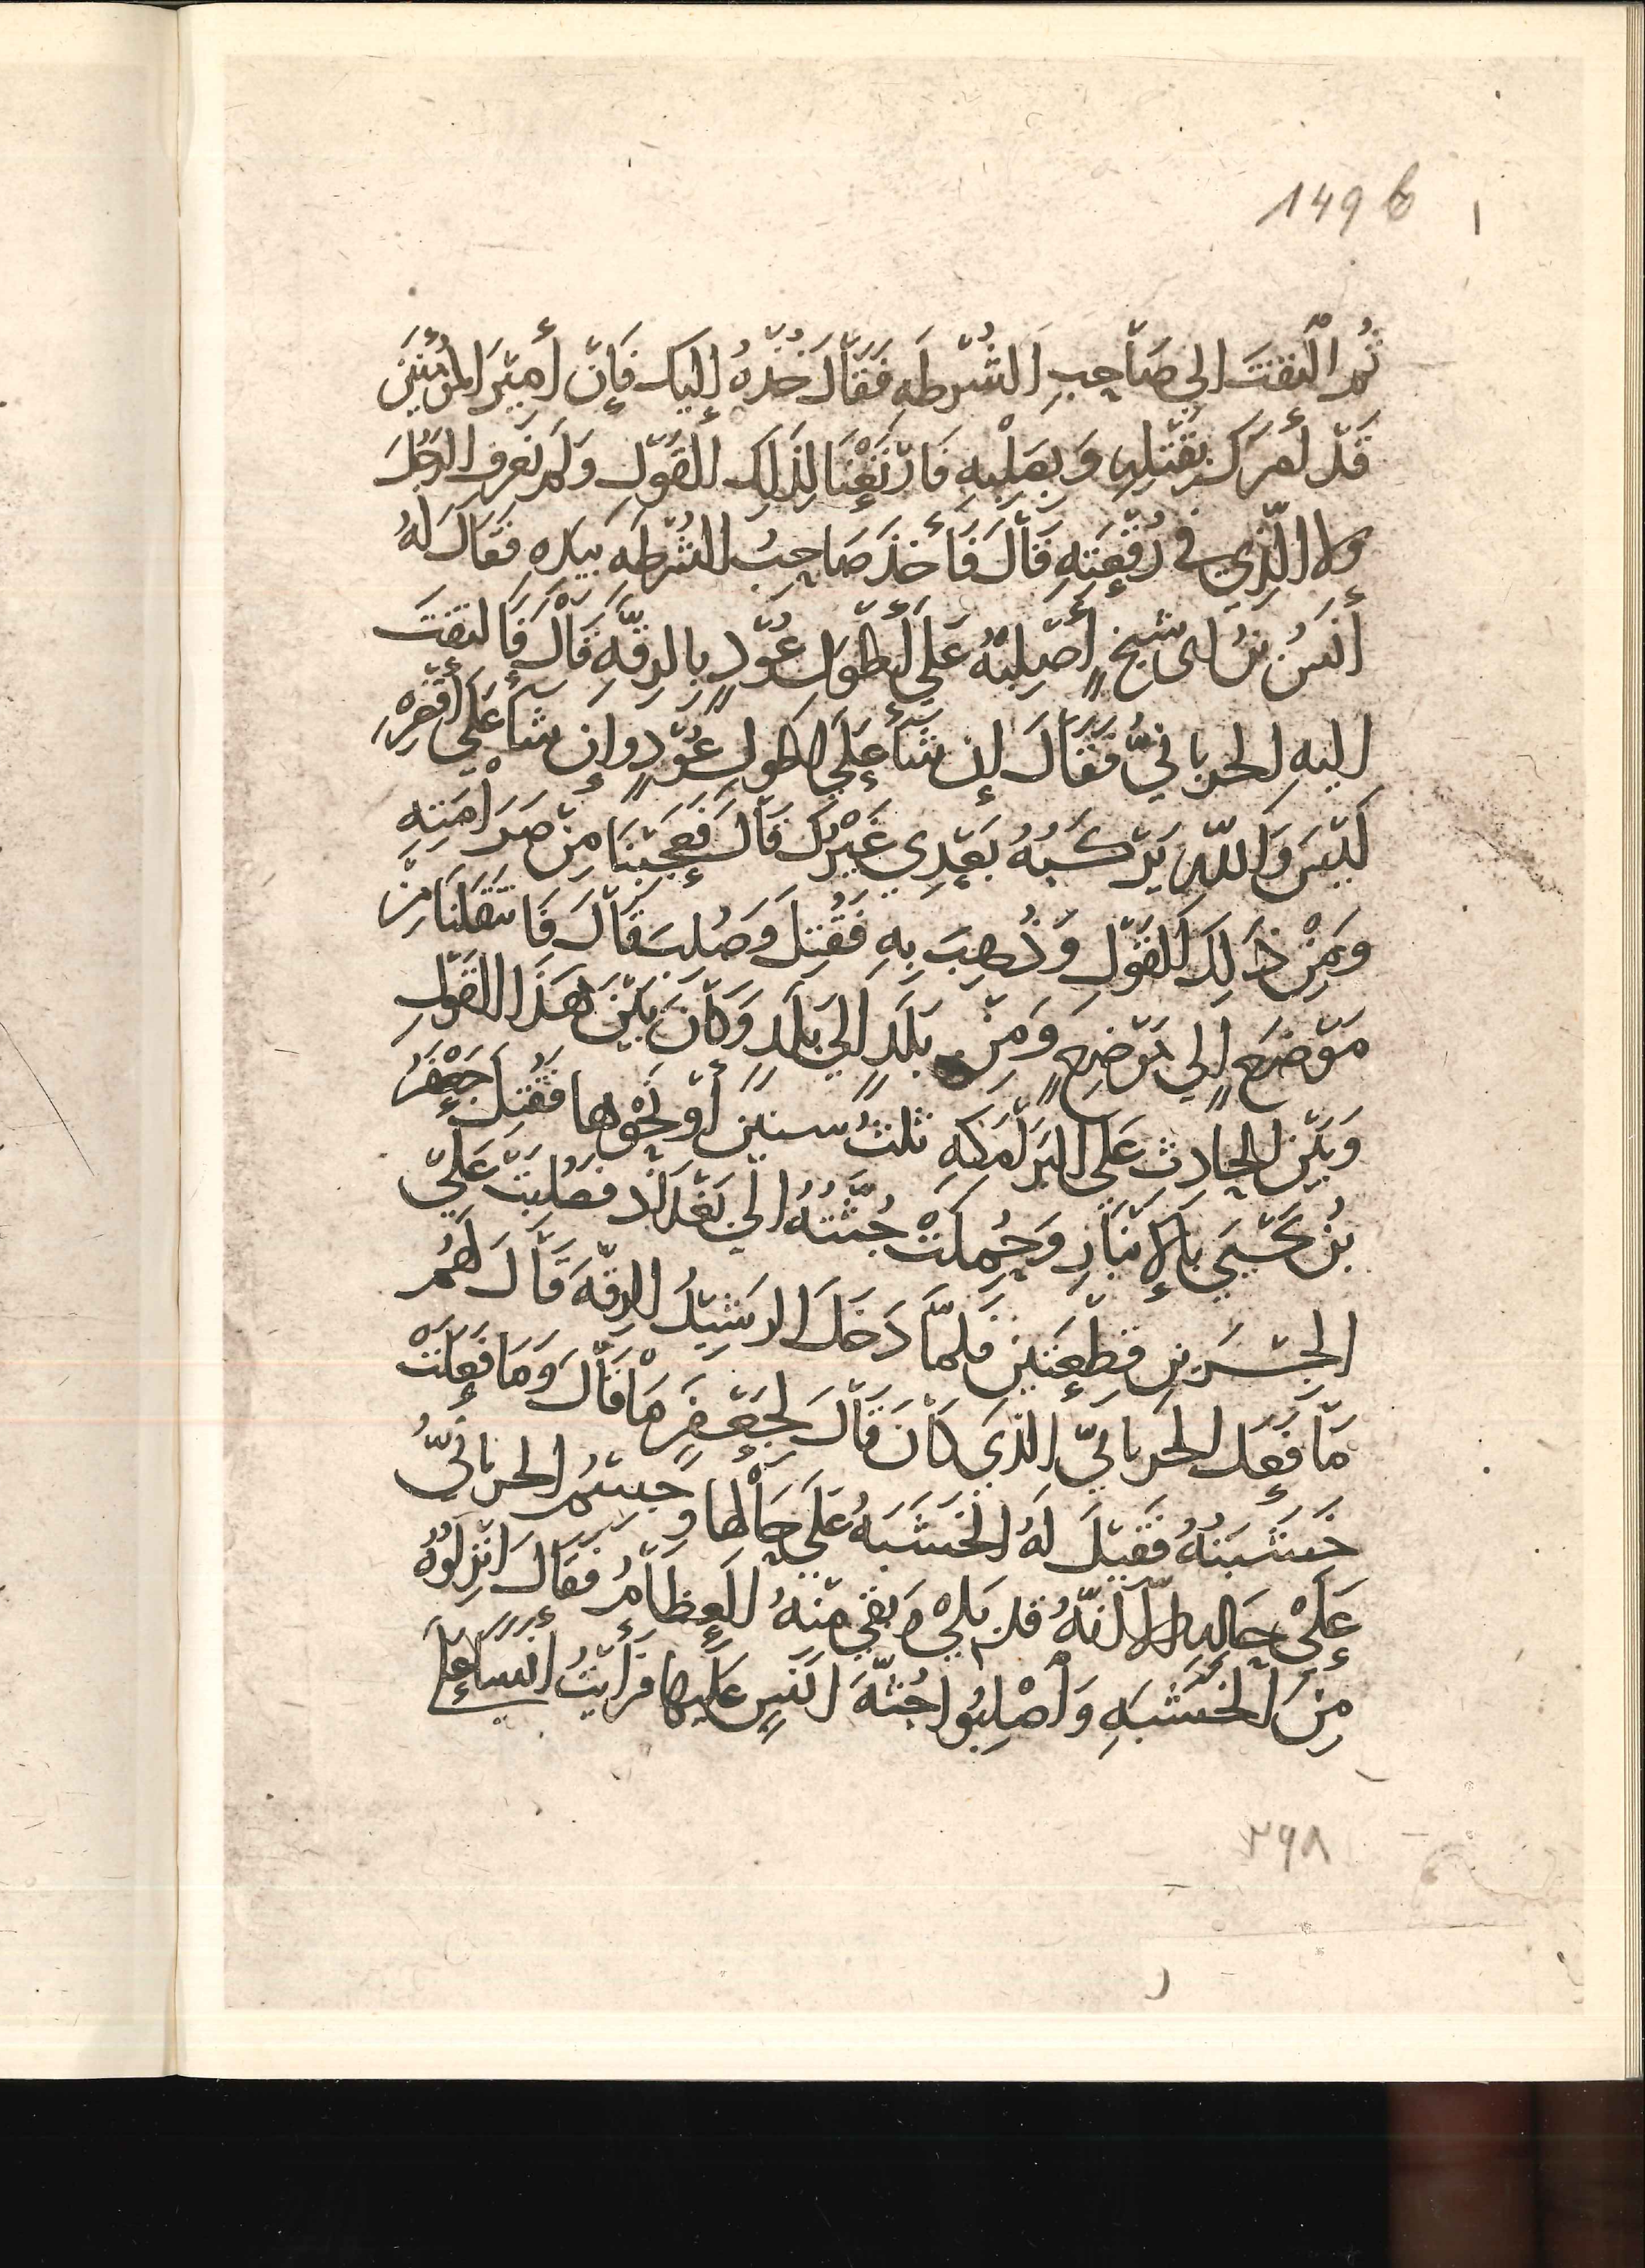 149 b
ثُمَّ الْتَفَتَ إلى صَاحِبِ الشُّرْطَهِ فَقَالَ خُذْهُ إليك فَإنّ أميْرَ المُؤْمِنيْنَ
قَدْ أمَرَكَ بِقَتْلِهِ وَبِصَلْبِهِ فَارْتَعْنَا لِذَلِكَ القَوْلِ وَلَمْ نَعْرِفِ الرَّجُلَ
ولا الّذِي في رُقْعَتِهِ قَالَ فَأَخَذَ صَاحِبُ الشُّرْطَهِ بيَدِهِ فَقَالَ لَهُ
أنَسُ بنُ ابى شيخٍ أصْلِبْهُ عَلَى أطْوَلِ عُوْدٍ بِالرقَّهِ قَالَ فَالتَفَتَ
اليهِ الحربانيُّ فَقَالَ إن شَأَ عَلَى اطول عُوْدٍ وإن شَأَ عَلَى أقْصَرِهِ
لَيْسَ وَاللهِ يَرْكَبُهُ بَعْدِي غَيْرُكَ قَالَ فَعَجِبْنَا مِنْ صَرَامَتِهِ
وَمِنْ ذَلِكَ القَوْلِ وَذُهِبَ بِهِ فَقُتِلَ وَصُلِبَ قَالَ فَانتَقَلْنَا مِنْ
مَوْضِعٍ إلى مَوْضِعٍ وَمِنْ بَلَدٍ الَى بَلَدٍ وَكَانَ بَيْنَ هَذَا القَوْلِ
وَبَيْنَ الحَادِثِ عَلَى البَرَامَكَهِ ثلثُ سنينَ أوْ نَحْوها فَقُتِلَ جَعْفَرُ
بْنُ يَحْيَى بالإنبَارِ وَحُمِلَتْ جُثَّتُهُ الَى بَغْدَاد فصُلِبَتْ عَلَى
الجسْرَينِ قطْعَتَينِ فَلمَّا دَخَلَ الرشِيْدُ الرقّهَ قَالَ لَهُم
مَا فَعَل الحربانيّ الّذِي كَانَ قَالَ لِجَعْفَرٍ مَا قَالَ وَمَا فَعَلَتْ
خَشَبَتُهُ فَقيْلَ لَهُ الخَشَبَهُ عَلَى حَالِها وَجسْمُ الحربانيُّ
عَلَى حَالِهِ الّا انّهُ قد بَلِىَ وَبَقِى مِنْهُ العِظَامُ فَقَالَ انْزِلُوْهُ
مِنَ الخَشَبَهِ وَأصْلِبُوا جُثّهَ انَسٍ عَلَيها فرَأيْتُ أنسًا عَلَى
٢٩٨